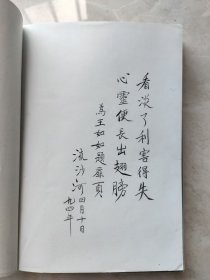 看淡了利害得失
心靈便長出翅膀
為王如如題扉頁
流沙河
四月十日
九四年